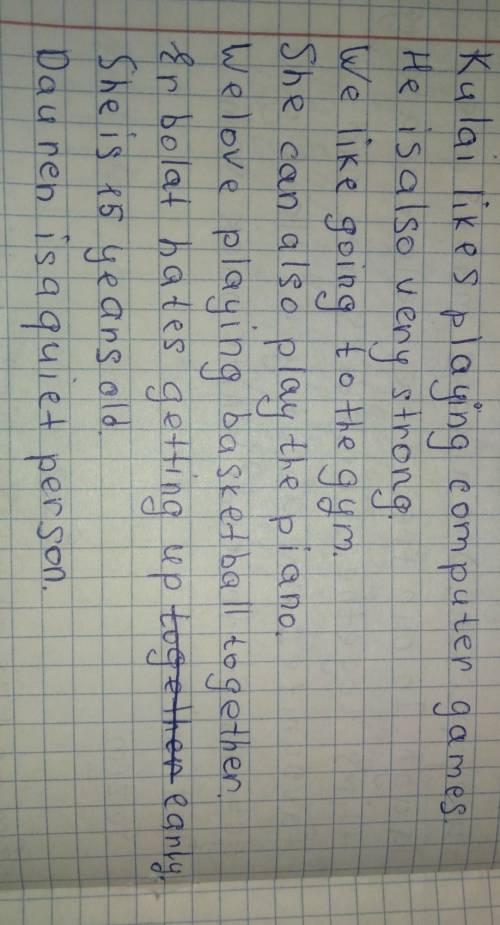 Kulai likes playing computer games.
He is also very strong.
We like going to the gym.
She can also play the piano.
We love playing basketball together.
Erbolat hates getting up together early.
She is 15 years old.
Dauren is a quiet person.